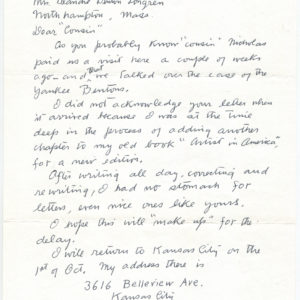 Mrs. Jeanne Benton Longren
Northampton, Mass.
Dear "Cousin"
As you probably know "cousin" Nicholas
paid us a visit here a couple of weeks
ago – and we talked over the case of the
Yankee Bentons.
I did not acknowledge your letter when
it arrived because I was at the time
deep in the process of adding another
chapter to my old book "Artist in America",
for a new edition.
After writing all day, correcting and
rewriting, I had no stomach for
letters, even nice ones like yours.
I hope this will "make up" for the
delay.
I will return to Kansas City on the
1st of Oct. My address there is
3616 Belleview Ave.
Kansas City